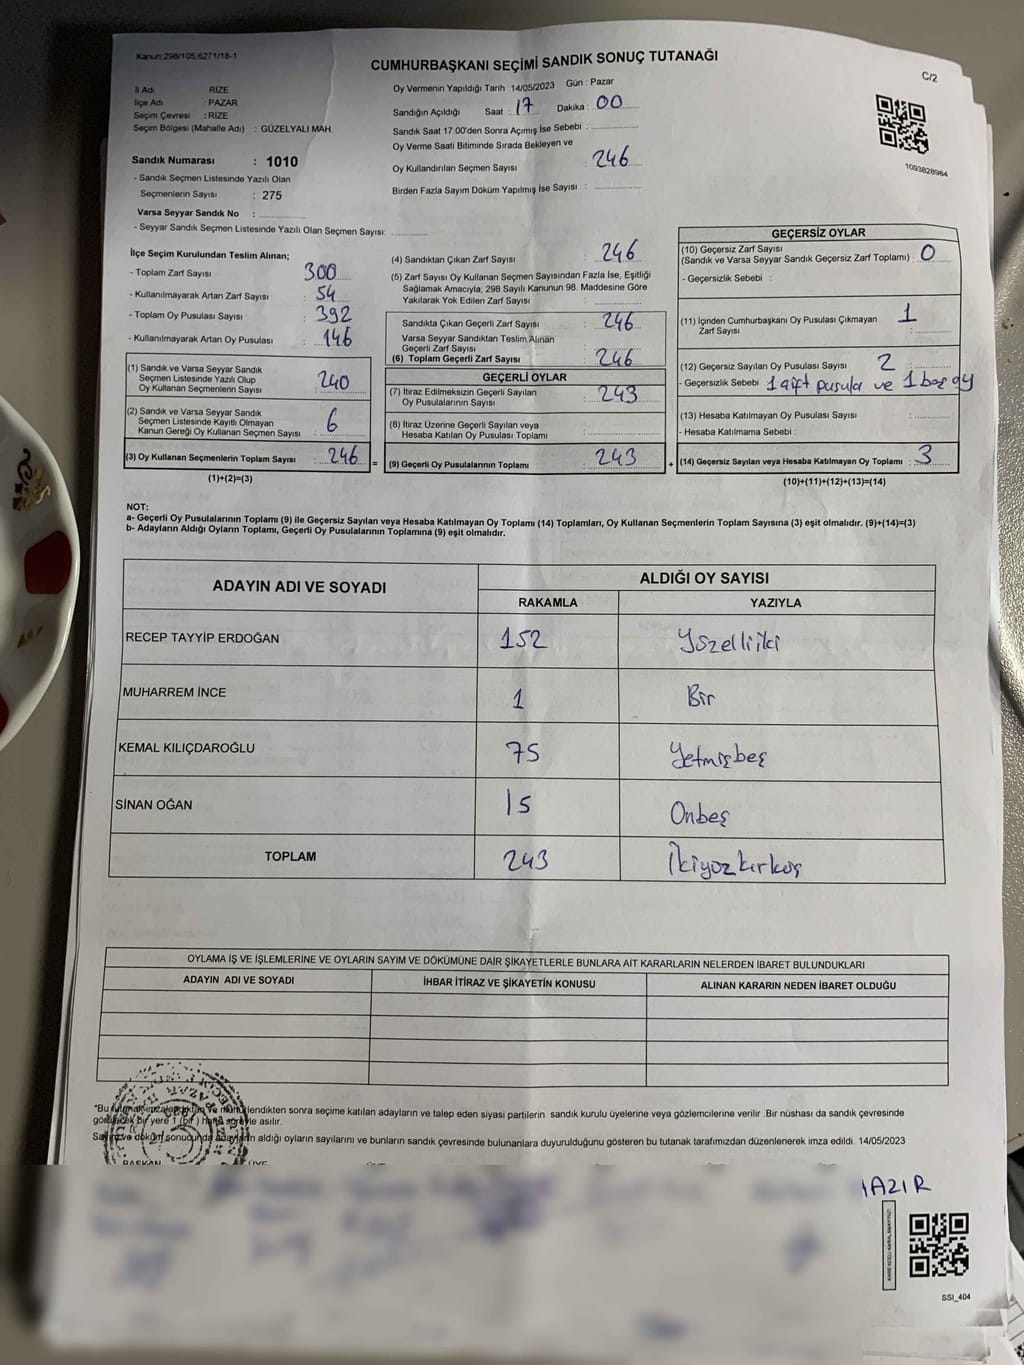 Kanun:298/105,6271/18-1
CUMHURBAŞKANI SEÇİMİ SANDIK SONUÇ TUTANAĞI
C/2
İl Adı RİZE
İlçe Adı : PAZAR
Seçim Çevresi : RİZE
Seçim Bölgesi (Mahalle Adı) : GÜZELYALI MAH.
Sandık Numarası : 1010
- Sandık Seçmen Listesinde Yazılı Olan
Seçmenlerin Sayısı : 275
Varsa Seyyar Sandık No :
- Seyyar Sandık Seçmen Listesinde Yazılı Olan Seçmen Sayısı:
Oy Vermenin Yapıldığı Tarih : 14/05/2023 Gün : Pazar
Sandığın Açıldığı Saat : 17 Dakika : 00
Sandık Saat 17:00'den Sonra Açımış İse Sebebi :
Oy Verme Saati Bitiminde Sırada Bekleyen ve
Oy Kullandırılan Seçmen Sayısı : 246
Birden Fazla Sayım Döküm Yapılmış İse Sayısı :
1093828984
İlçe Seçim Kurulundan Teslim Alınan;
- Toplam Zarf Sayısı : 300
- Kullanılmayarak Artan Zarf Sayısı : 54
- Toplam Oy Pusulası Sayısı : 392
- Kullanılmayarak Artan Oy Pusulası : 146
(1) Sandık ve Varsa Seyyar Sandık
Seçmen Listesinde Yazılı Olup
Oy Kullanan Seçmenlerin Sayısı : 240
(2) Sandık ve Varsa Seyyar Sandık
Seçmen Listesinde Kayıtlı Olmayan
Kanun Gereği Oy Kullanan Seçmen Sayısı : 6
(3) Oy Kullanan Seçmenlerin Toplam Sayısı : 246 =
(1)+(2)=(3)
(4) Sandıktan Çıkan Zarf Sayısı : 246
(5) Zarf Sayısı Oy Kullanan Seçmen Sayısından Fazla İse, Eşitliği
Sağlamak Amacıyla, 298 Sayılı Kanunun 98. Maddesine Göre
Yakılarak Yok Edilen Zarf Sayısı :
Sandıkta Çıkan Geçerli Zarf Sayısı : 246
Varsa Seyyar Sandıktan Teslim Alınan
Geçerli Zarf Sayısı :
(6) Toplam Geçerli Zarf Sayısı : 246
GEÇERLİ OYLAR
(7) İtiraz Edilmeksizin Geçerli Sayılan
Oy Pusulalarının Sayısı : 243
(8) İtiraz Üzerine Geçerli Sayılan veya
Hesaba Katılan Oy Pusulası Toplamı :
(9) Geçerli Oy Pusulalarının Toplamı : 243 +
GEÇERSİZ OYLAR
(10) Geçersiz Zarf Sayısı
(Sandık ve Varsa Seyyar Sandık Geçersiz Zarf Toplamı) : 0
- Geçersizlik Sebebi :
(11) İçinden Cumhurbaşkanı Oy Pusulası Çıkmayan
Zarf Sayısı : 1
(12) Geçersiz Sayılan Oy Pusulası Sayısı : 2
- Geçersizlik Sebebi : 1 çift pusula ve 1 boş oy
(13) Hesaba Katılmayan Oy Pusulası Sayısı :
- Hesaba Katılmama Sebebi :
(14) Geçersiz Sayılan veya Hesaba Katılmayan Oy Toplamı : 3
(10)+(11)+(12)+(13)=(14)
NOT:
a- Geçerli Oy Pusulalarının Toplamı (9) ile Geçersiz Sayılan veya Hesaba Katılmayan Oy Toplamı (14) Toplamları, Oy Kullanan Seçmenlerin Toplam Sayısına (3) eşit olmalıdır. (9)+(14)=(3)
b- Adayların Aldığı Oyların Toplamı, Geçerli Oy Pusulalarının Toplamına (9) eşit olmalıdır.
ADAYIN ADI VE SOYADI ALDIĞI OY SAYISI
RAKAMLA YAZIYLA
RECEP TAYYİP ERDOĞAN 152 Yüzelliiki
MUHARREM İNCE 1 Bir
KEMAL KILIÇDAROĞLU 75 Yetmişbeş
SİNAN OĞAN 15 Onbeş
TOPLAM 243 İkiyüzkırküç
OYLAMA İŞ VE İŞLEMLERİNE VE OYLARIN SAYIM VE DÖKÜMÜNE DAİR ŞİKAYETLERLE BUNLARA AİT KARARLARIN NELERDEN İBARET BULUNDUKLARI
ADAYIN ADI VE SOYADI İHBAR İTİRAZ VE ŞİKAYETİN KONUSU ALINAN KARARIN NEDEN İBARET OLDUĞU
"Bu tutanak imzalandıktan ve mühürlendikten sonra seçime katılan adayların ve talep eden siyasi partilerin sandık kurulu üyelerine veya gözlemcilerine verilir .Bir nüshası da sandık çevresinde
görülecek bir yere 1 (bir ) hafta süreyle asılır.
Sayım ve döküm sonucunda adayların aldığı oyların sayılarını ve bunların sandık çevresinde bulunanlara duyurulduğunu gösteren bu tutanak tarafımızdan düzenlenerek imza edildi. 14/05/2023
BAŞKAN ÜYE
SSI_404